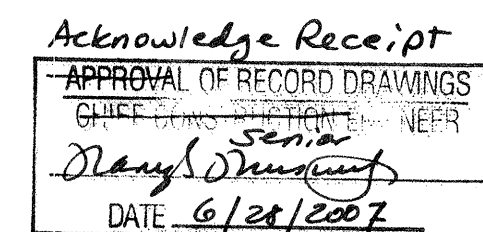 Acknowledge Receipt
APPROVAL OF RECORD DRAWINGS
CHIEF CONSTRUCTION ENGINEER
Senior
DATE 6/28/2007